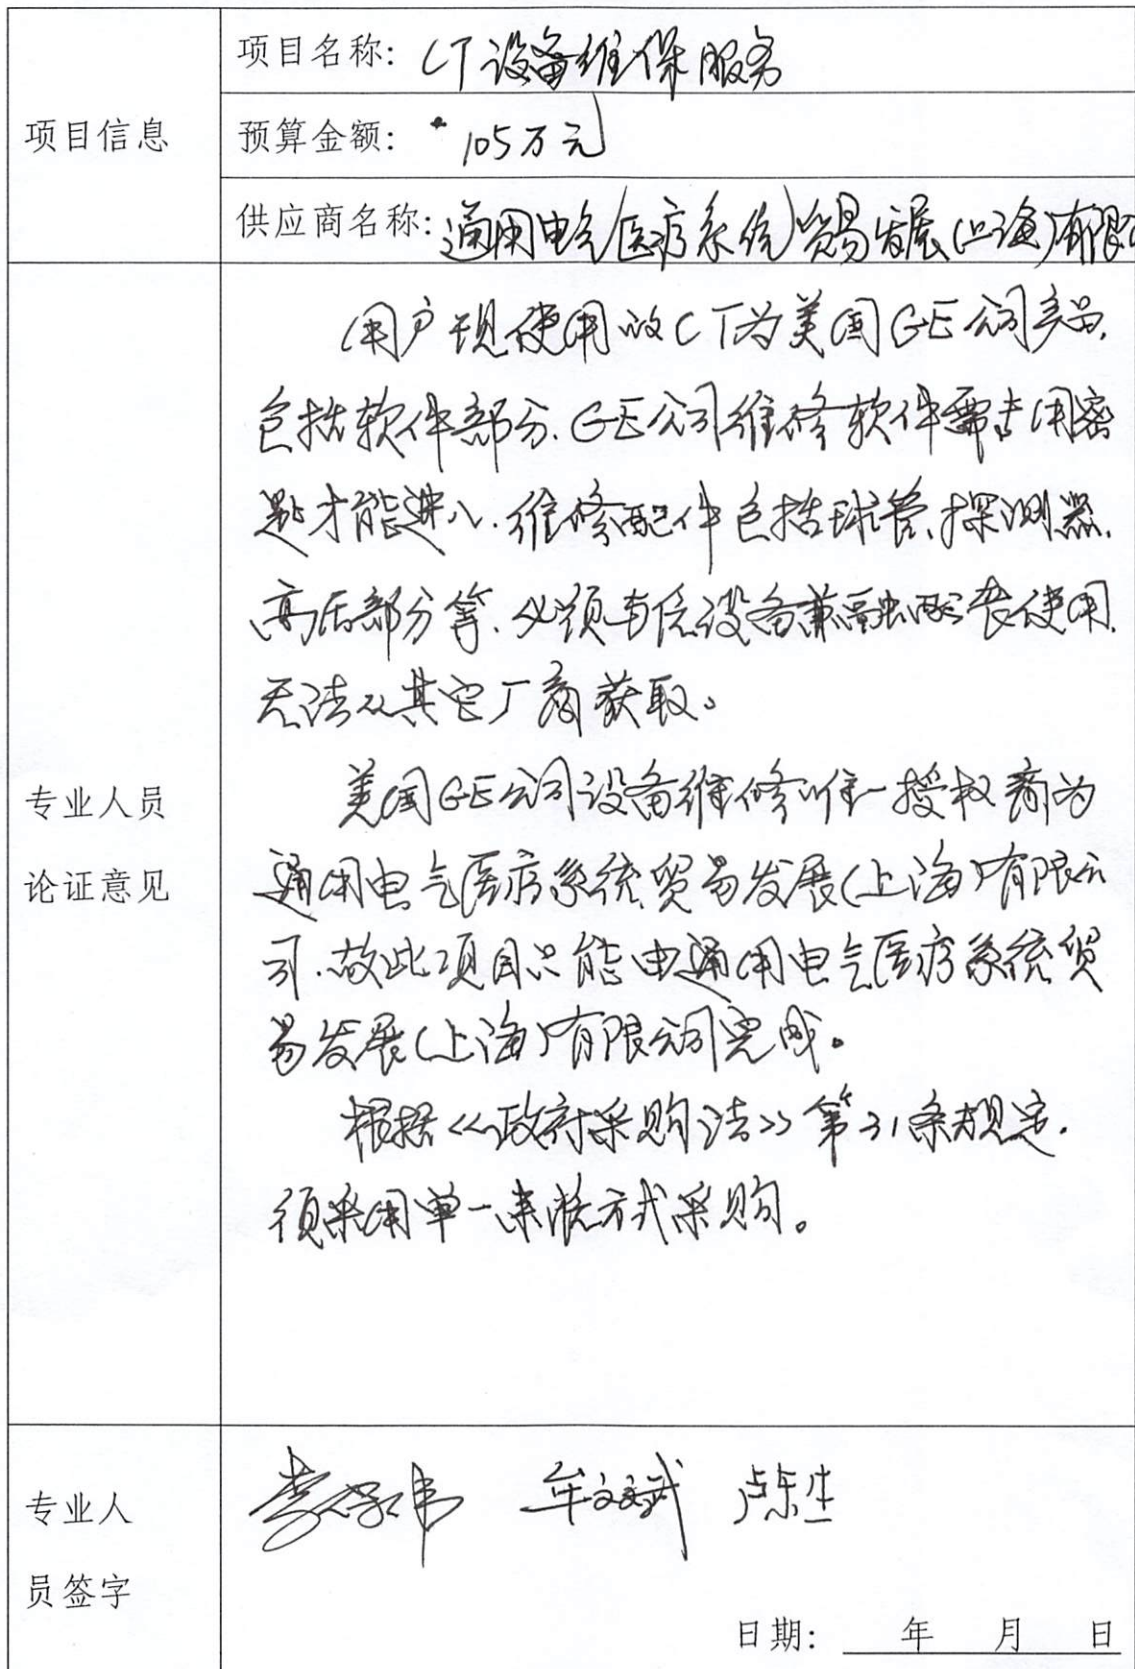 项目信息
项目名称: CT设备维保服务
预算金额: 105万元
供应商名称: 通用电气(医疗系统)贸易发展(上海)有限
专业人员
论证意见
用户现使用的CT为美国GE公司产品,
包括软件部分.GE公司维修软件需专用密
匙才能进入.维修配件包括球管、探测器、
高压部分等.必须与原设备兼融配套使用,
无法从其它厂商获取。
美国GE公司设备维修唯一授权商为
通用电气医疗系统贸易发展(上海)有限公
司.故此项目只能由通用电气医疗系统贸
易发展(上海)有限公司完成。
根据《政府采购法》第31条规定.
须采用单一来源方式采购。
专业人
员签字
牟文斌 卢东生
日期: 年 月 日